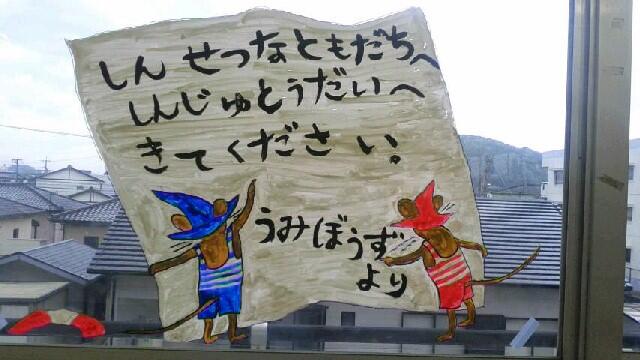 しんせつなともだちへ
しんじゅとうだいへ
きてください。
うみぼうず
より